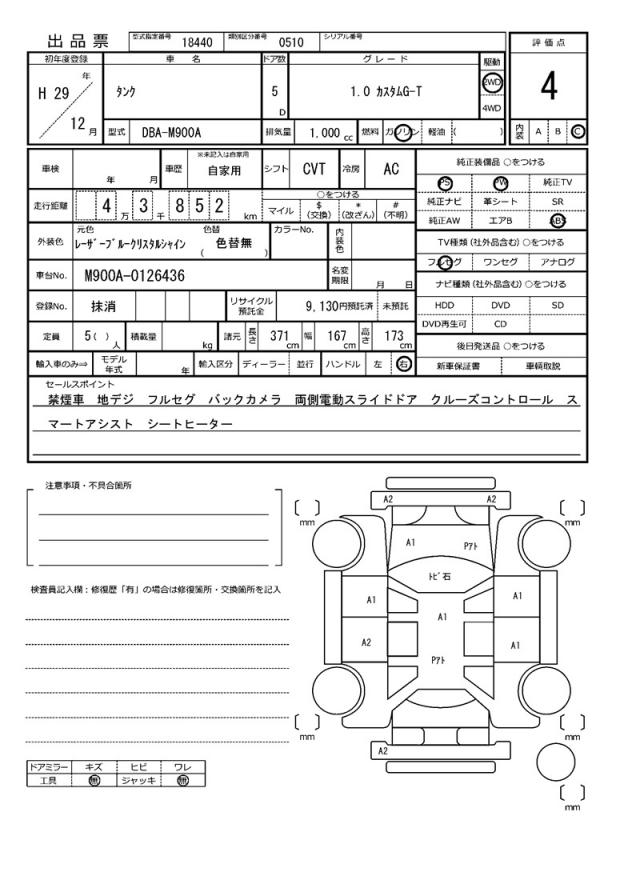 出品票 型式指定番号 18440 類別区分番号 0510 シリアル番号
評価点
4
内装 A B C
初年度登録 車名 ドア数 グレード 駆動
H 29 年 12 月
タンク 5 D 1.0 カスタムG-T 2WD 4WD
型式 DBA-M900A 排気量 1.000 cc 燃料 ガソリン 軽油 ( )
車検 年 月 車歴 ※未記入は自家用 自家用 シフト CVT 冷房 AC
走行距離 4 万 3 千 8 5 2 km ○をつける
マイル $ (交換) * (改ざん) # (不明)
外装色 元色 レーザーブルークリスタルシャイン 色替 ( 色替無 ) カラーNo. 内装色
車台No. M900A-0126436 名変期限 月 日
登録No. 抹消 リサイクル預託金 9,130円預託済 未預託
定員 5( ) 人 積載量 kg 諸元 長さ 371 cm 幅 167 cm 高さ 173 cm
輸入車のみ⇒ モデル年式 年 輸入区分 ディーラー 並行 ハンドル 左 右
純正装備品 ○をつける
PS PW 純正TV
純正ナビ 革シート SR
純正AW エアB ABS
TV種類 (社外品含む) ○をつける
フルセグ ワンセグ アナログ
ナビ種類 (社外品含む) ○をつける
HDD DVD SD
DVD再生可 CD
後日発送品 ○をつける
新車保証書 車輌取説
セールスポイント
禁煙車 地デジ フルセグ バックカメラ 両側電動スライドドア クルーズコントロール ス
マートアシスト シートヒーター
注意事項・不具合箇所
検査員記入欄：修復歴「有」の場合は修復箇所・交換箇所を記入
ドアミラー キズ ヒビ ワレ
工具 無 ジャッキ 無
A2 A2
mm mm
A1 Pアト
トビ石
A1 A1 A1
A2 A1
Pアト
mm mm
A2
mm